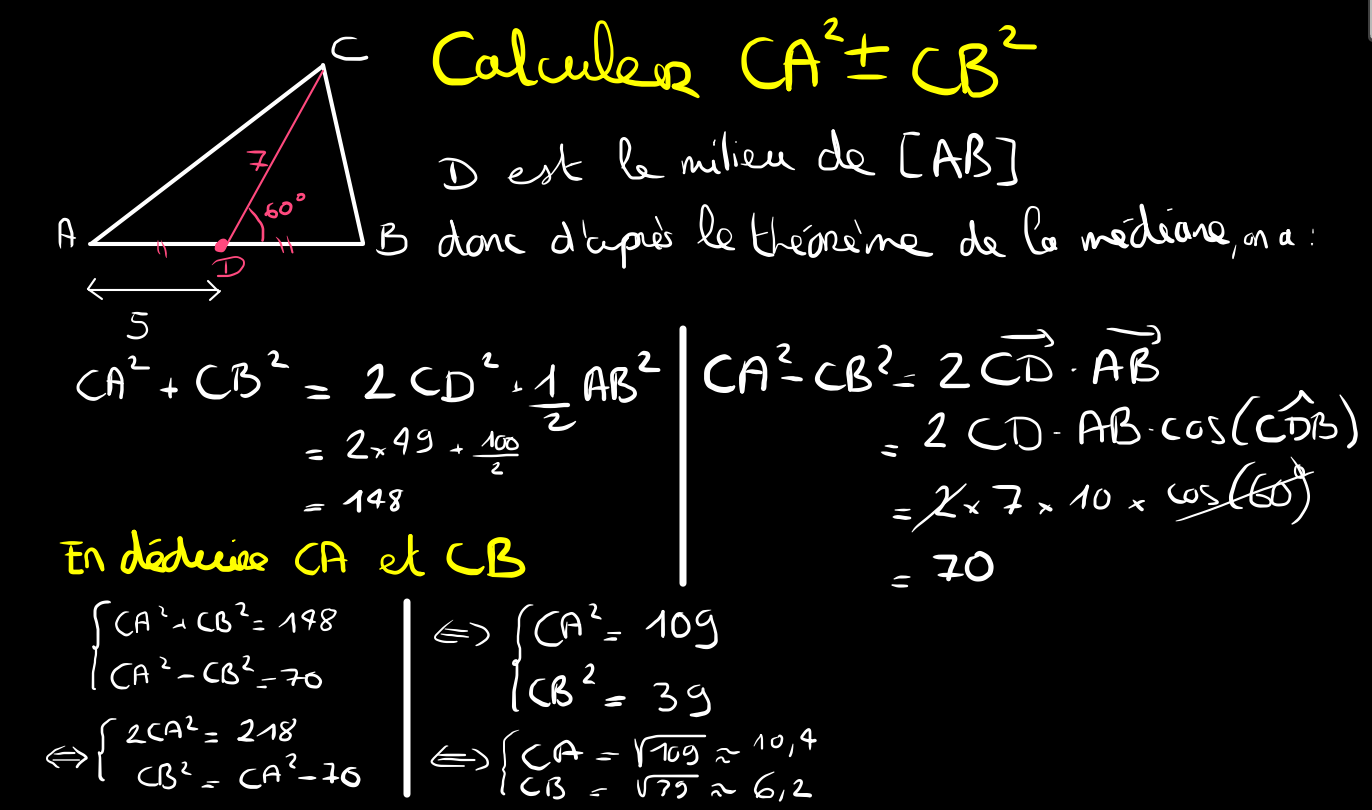 Calculer CA² ± CB²
C
7
60°
A
B
D
5
D est le milieu de [AB]
donc d'après le théorème de la médiane, on a :
CA² + CB² = 2 CD² + 1/2 AB²
= 2 × 49 + 100/2
= 148
CA² - CB² = 2 CD · AB
= 2 CD · AB · cos(CDB)
= 2 × 7 × 10 × cos(60°)
= 70
En déduire CA et CB
CA² + CB² = 148
CA² - CB² = 70
⇔ 2CA² = 218
CB² = CA² - 70
⇔ CA² = 109
CB² = 39
⇔ CA = √109 ≈ 10,4
CB = √39 ≈ 6,2